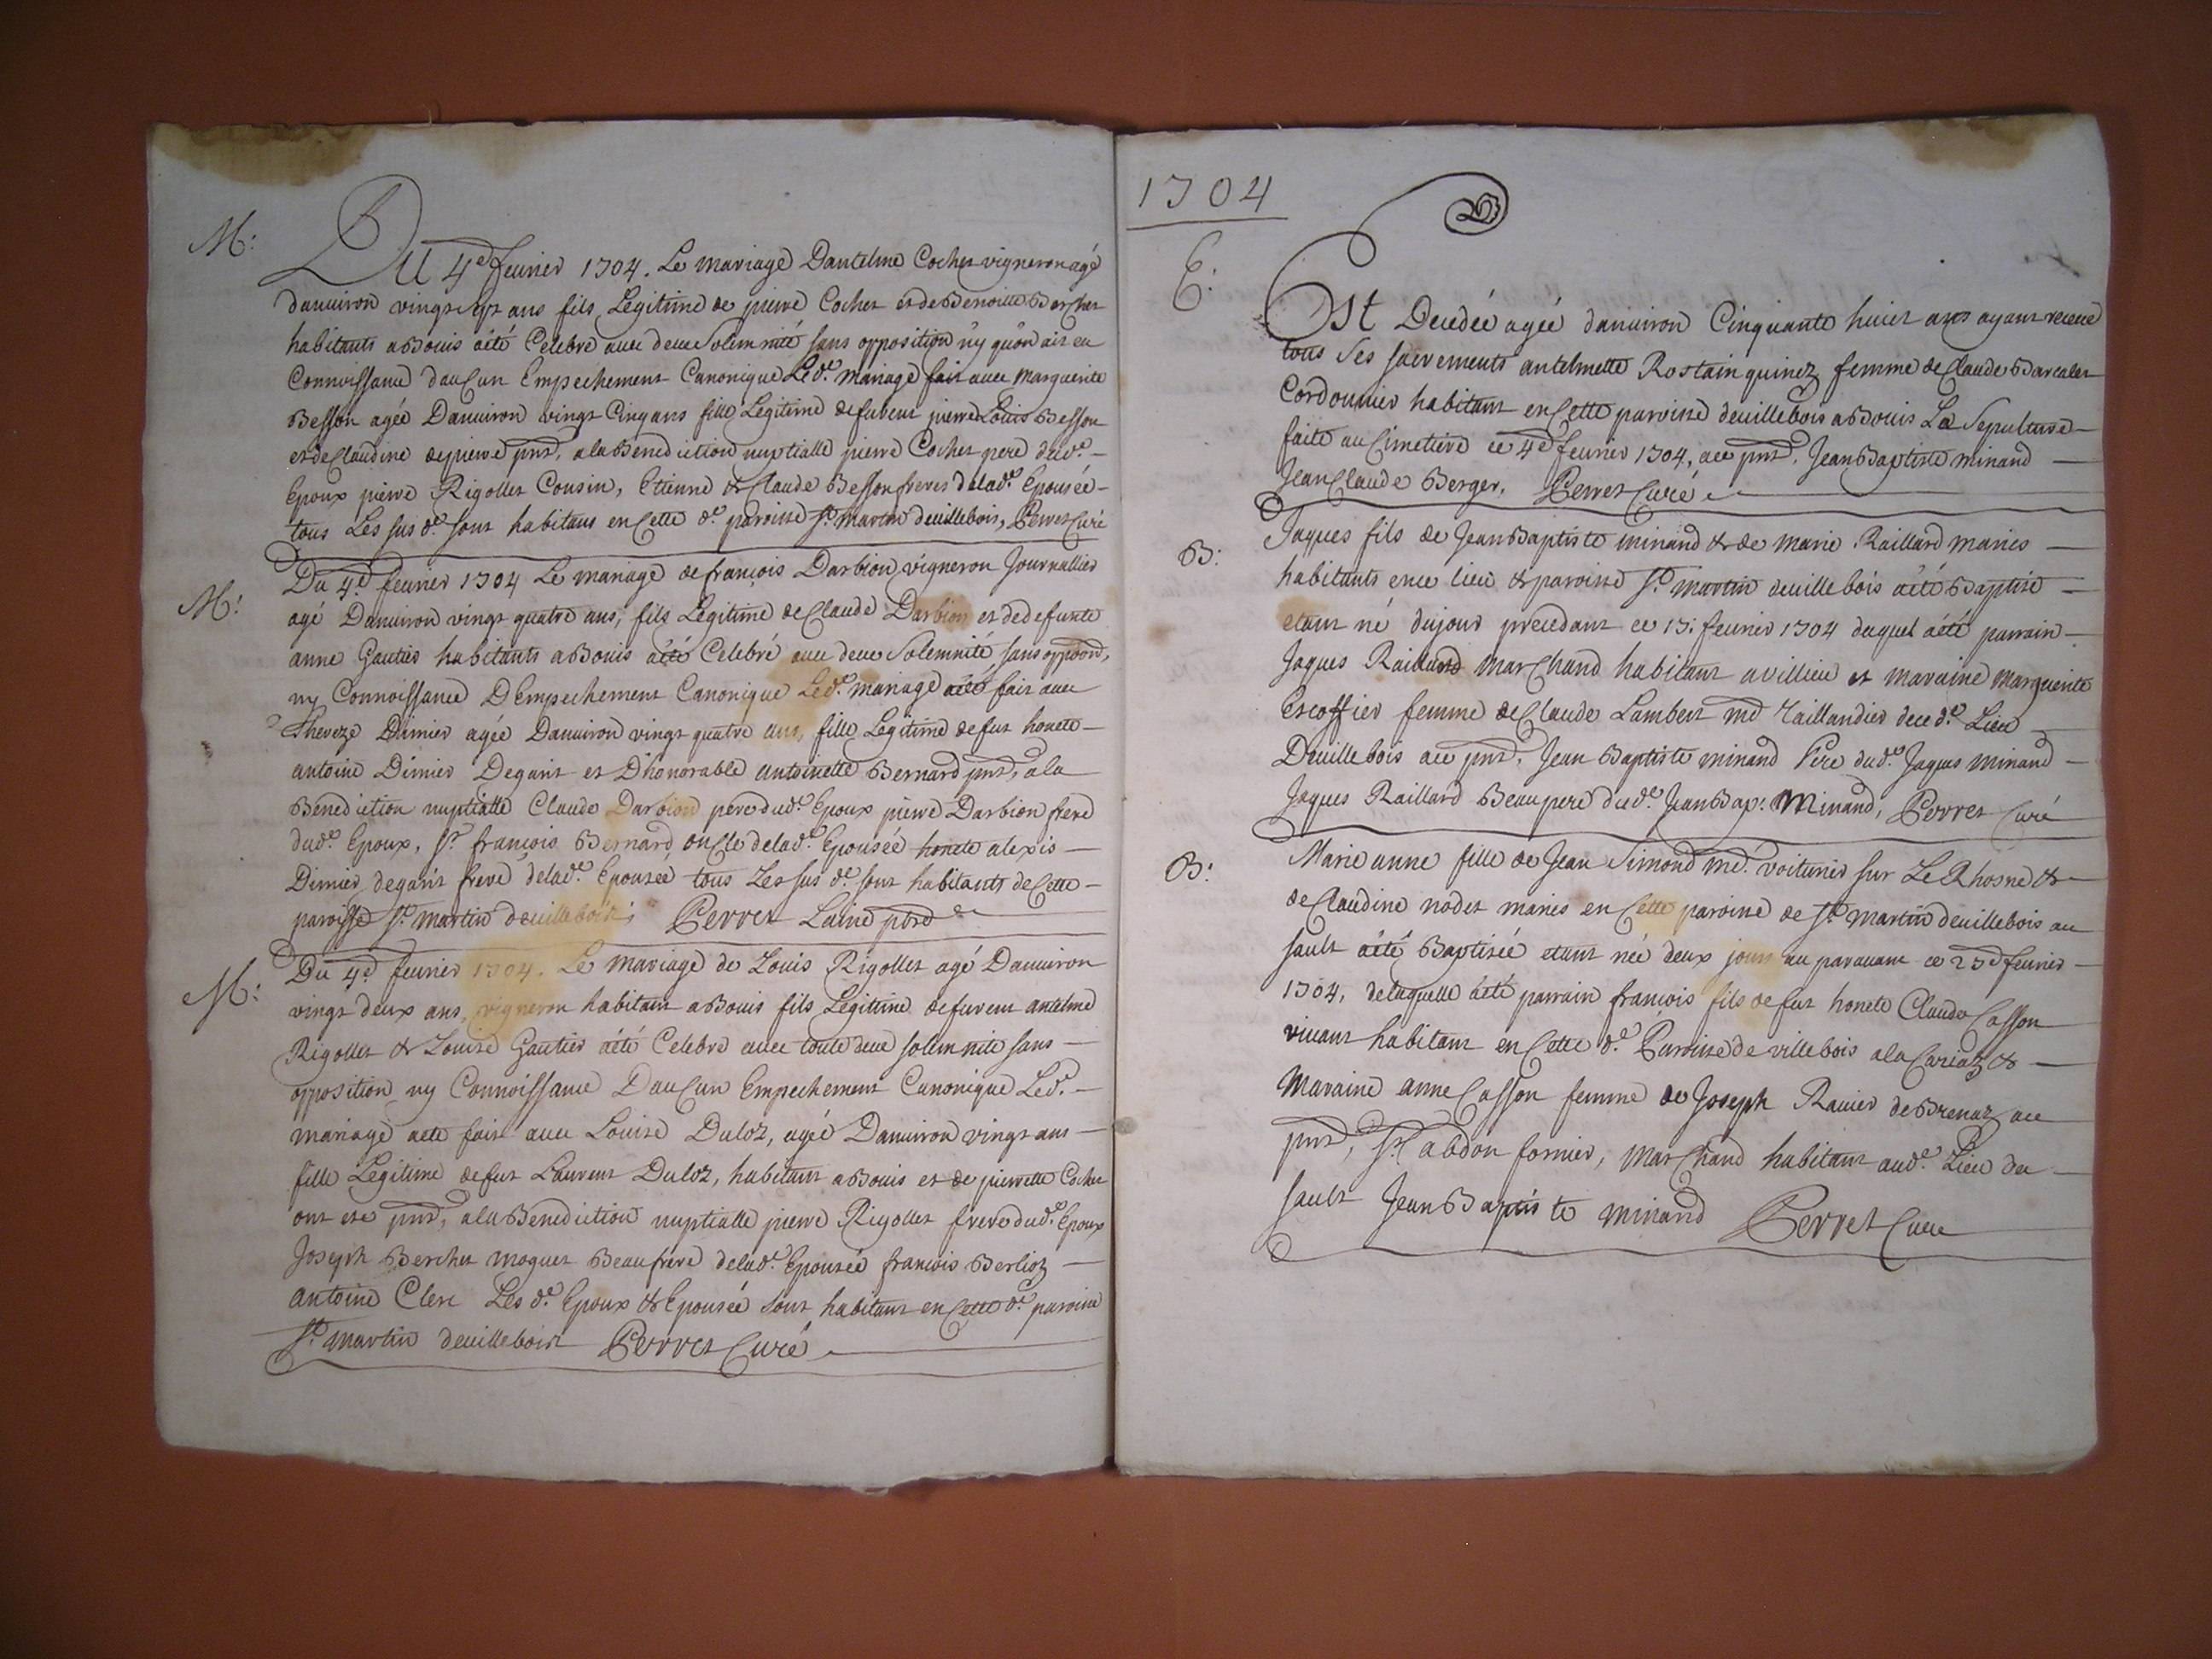 M:
Du 4e. feurier 1704. Le mariage Dantelme Cochet vigneron agé
danuiron vingt sept ans fils Legitime de pierre Cochet et de Benoite Berchet
habitants a Bouis aété Celebre auec deue Solemnité sans opposition n'y qu'on ait eu
Connoissance d'aucun Empechement Canonique Led.e mariage fait auec Marguerite
Besson agée Danuiron vingt Cinq ans fille Legitime de fubeut pierre Louis Besson
et de Claudine depierre pnt, ala Benediction nuptialle pierre Cochet pere dud.e
Epoux pierre Rigollet Cousin, Etienne & Claude Besson freres delad.e Epousée
tous Les sus d.e sont habitans en Cette d.e paroisse St. martin deuillebois, Perret Curé
M:
Du 4.e feurier 1704 Le mariage de françois Darbion vigneron Journallier
agé Danuiron vingt quatre ans, fils Legitime de Claude Darbion et de defunte
anne Gautier habitants a Bouis aété Celebré auec deue Solemnité sans oppoon,
ny Connoissance D'Empechement Canonique Led.e mariage aété fait auec
Thereze Dimier agée Danuiron vingt quatre ans, fille Legitime de fut honete
antoine Dimier Deganit et D'honorable antoinette Bernard pnt, ala
Benediction nuptialle Claude Darbion pere dud.e Epoux pierre Darbion frere
dud.e Epoux, Sr. françois Bernard oncle delad.e Epousée honete alexis
Dimier deganit frere delad.e Epousée tous Les sus d.e sont habitants de Cette
paroisse St. martin deuillebois; Perret Laine pbre
M:
Du 4.e feurier 1704. Le Mariage de Louis Rigollet agé Danuiron
vingt deux ans, vigneron habitant a Bouis fils Legitime de fuveut antelme
Rigollet & Louise Gautier aété Celebre auec toute deue solemnite sans
opposition ny Connoissance D'aucun Empechement Canonique Led.e
mariage aete fait auec Louise Duloz, agée Danuiron vingt ans
fille Legitime de fut Laurent Duloz, habitant a Bouis et de pierrette Cochet
ont ete pnt, ala Benediction nuptialle pierre Rigollet frere dud.e Epoux
Joseph Berchet moquet Beaufrere delad.e Epousée francois Berlioz
antoine Clerc Les d.e Epoux & Epousée sont habitant en Cette d.e paroisse
St. martin deuillebois Perret Curé
1704
E:
Est Decedée agée danuiron Cinquante huict ans ayant receue
tous Ses sacrements antelmette Rostain quinez femme de Claude Barcalet
Cordonnier habitant en Cette paroisse deuillebois a Bouis La Sepulture
faite au Cimetiere ce 4e feurier 1704, ace pnt, Jean Baptiste minand
Jean Claude Berger, Perret Curé
B:
Jaques fils de Jean Baptiste minand & de Marie Raillard maries
habitants en ce lieu & paroisse St. martin deuillebois aété Baptisé
etant né dujour precedant ce 15: feurier 1704 duquel aété parrain
Jaques Raillard Marchand habitant avillieu et maraine marguerite
Escoffier femme de Claude Lambert md Taillandier dece d.e Lieu
Deuillebois ace pnt, Jean Baptiste minand Pere dud.e Jaques minand
Jaques Raillard Beaupere dud.e Jean Bap: Minand, Perret Curé
B:
Marie anne fille de Jean Simond md. voiturier sur Le Rhosne &
de Claudine nodet maries en Cette paroisse de St. martin deuillebois au
sault aété Baptisée etant née deux jours au parauant ce 25e feurier
1704, delaquelle aété parrain françois fils de fut honete Claude Casson
viuant habitant en Cette d.e Paroisse de villebois ala Cariaz &
Maraine anne Casson femme de Joseph Rauier de Brenaz ace
pnt, Sr. abdon fornier, Marchand habitant aud.e Lieu du
sault Jean Baptiste minand Perret Curé